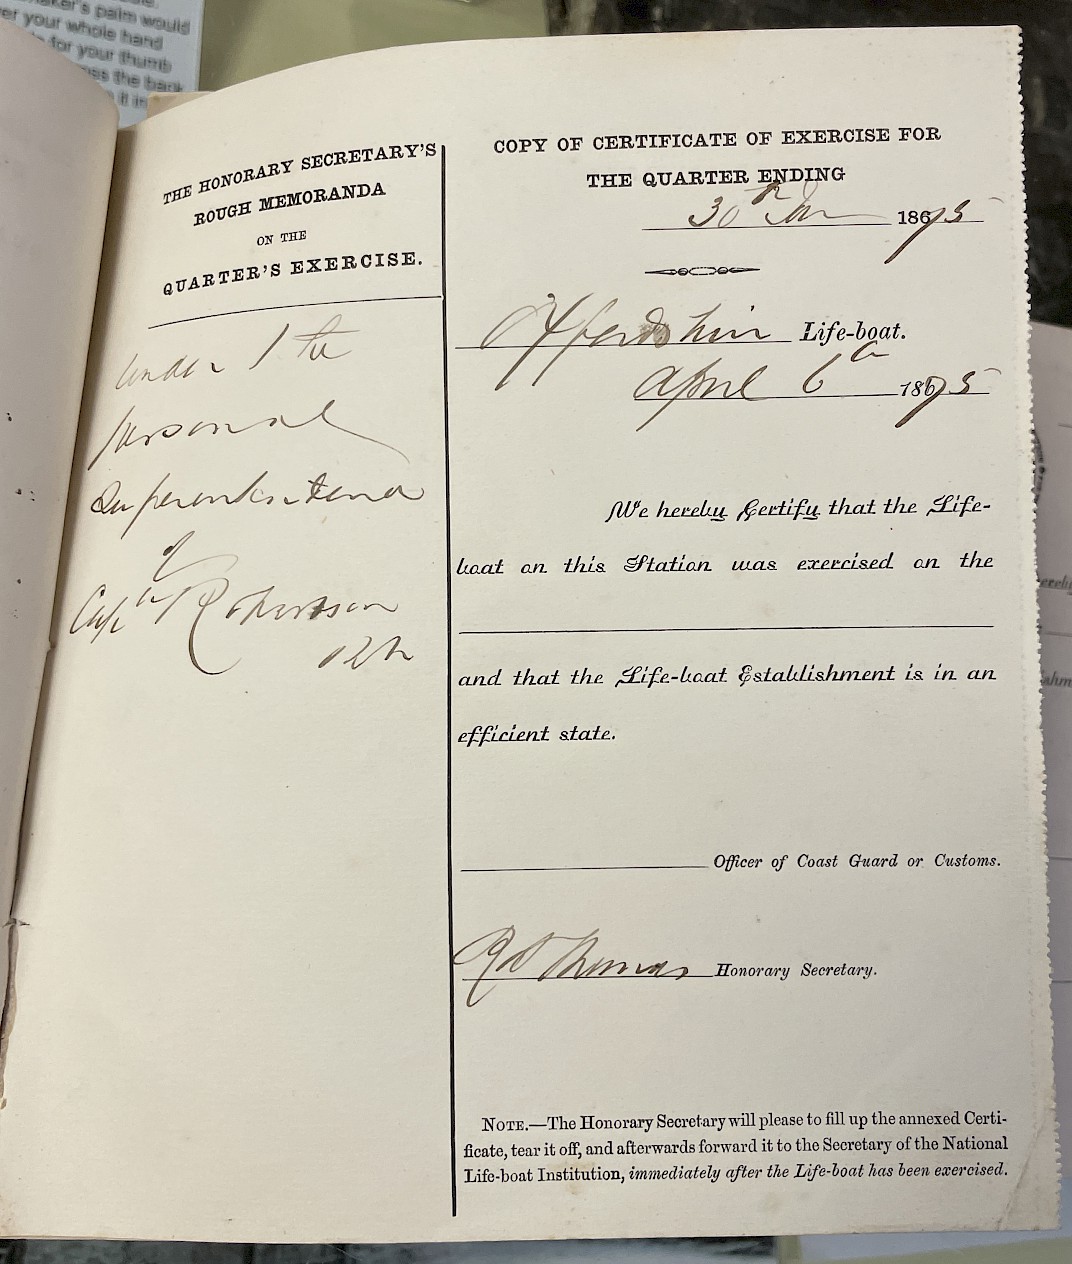 maker's palm would
er your whole hand
for your thumb
ss the back
it in
THE HONORARY SECRETARY'S
ROUGH MEMORANDA
ON THE
QUARTER'S EXERCISE.
under the
personal
of
Captn Robertson
RN
COPY OF CERTIFICATE OF EXERCISE FOR
THE QUARTER ENDING
30th 1875
Life-boat.
April 6th 1875
We hereby Certify that the Life-
boat on this Station was exercised on the
and that the Life-boat Establishment is in an
efficient state.
Officer of Coast Guard or Customs.
Thomas Honorary Secretary.
NOTE.—The Honorary Secretary will please to fill up the annexed Certi-
ficate, tear it off, and afterwards forward it to the Secretary of the National
Life-boat Institution, immediately after the Life-boat has been exercised.